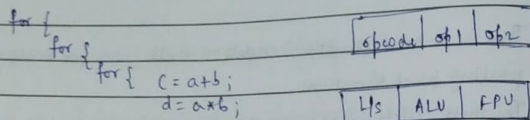 for {
for {
for { c = a+b ;
d = a*b ;
opcode op1 op2
L/S ALU FPU